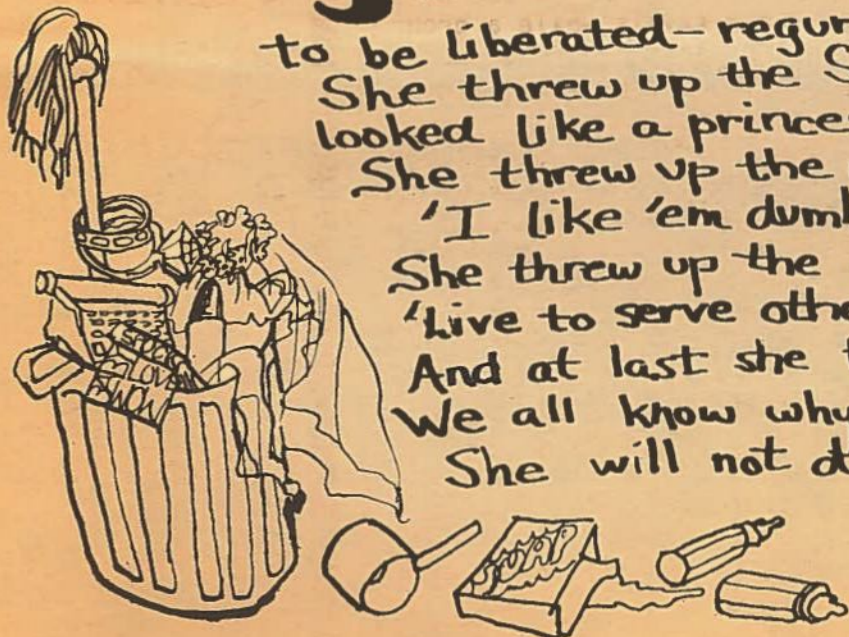 to be liberated-regur
She threw up the S
looked like a prince
She threw up the
'I like 'em dumb
She threw up the
'Live to serve othe
And at last she t
We all know why
She will not d
SOAP